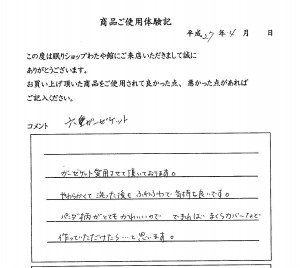 商品ご使用体験記
平成27年4月 日
この度は眠りショップわたや館にご来店いただきまして誠に
ありがとうございます。
お買い上げ頂いた商品をご使用されて良かった点、悪かった点があれば
ご記入ください。
コメント 六重ガーゼケット
ガーゼケット愛用させて頂いております。
やわらかくて洗った後もふわふわで気持ち良いです。
パンダ柄がとてもかわいいので できればまくらカバーなども
作っていただけたら…と思います。